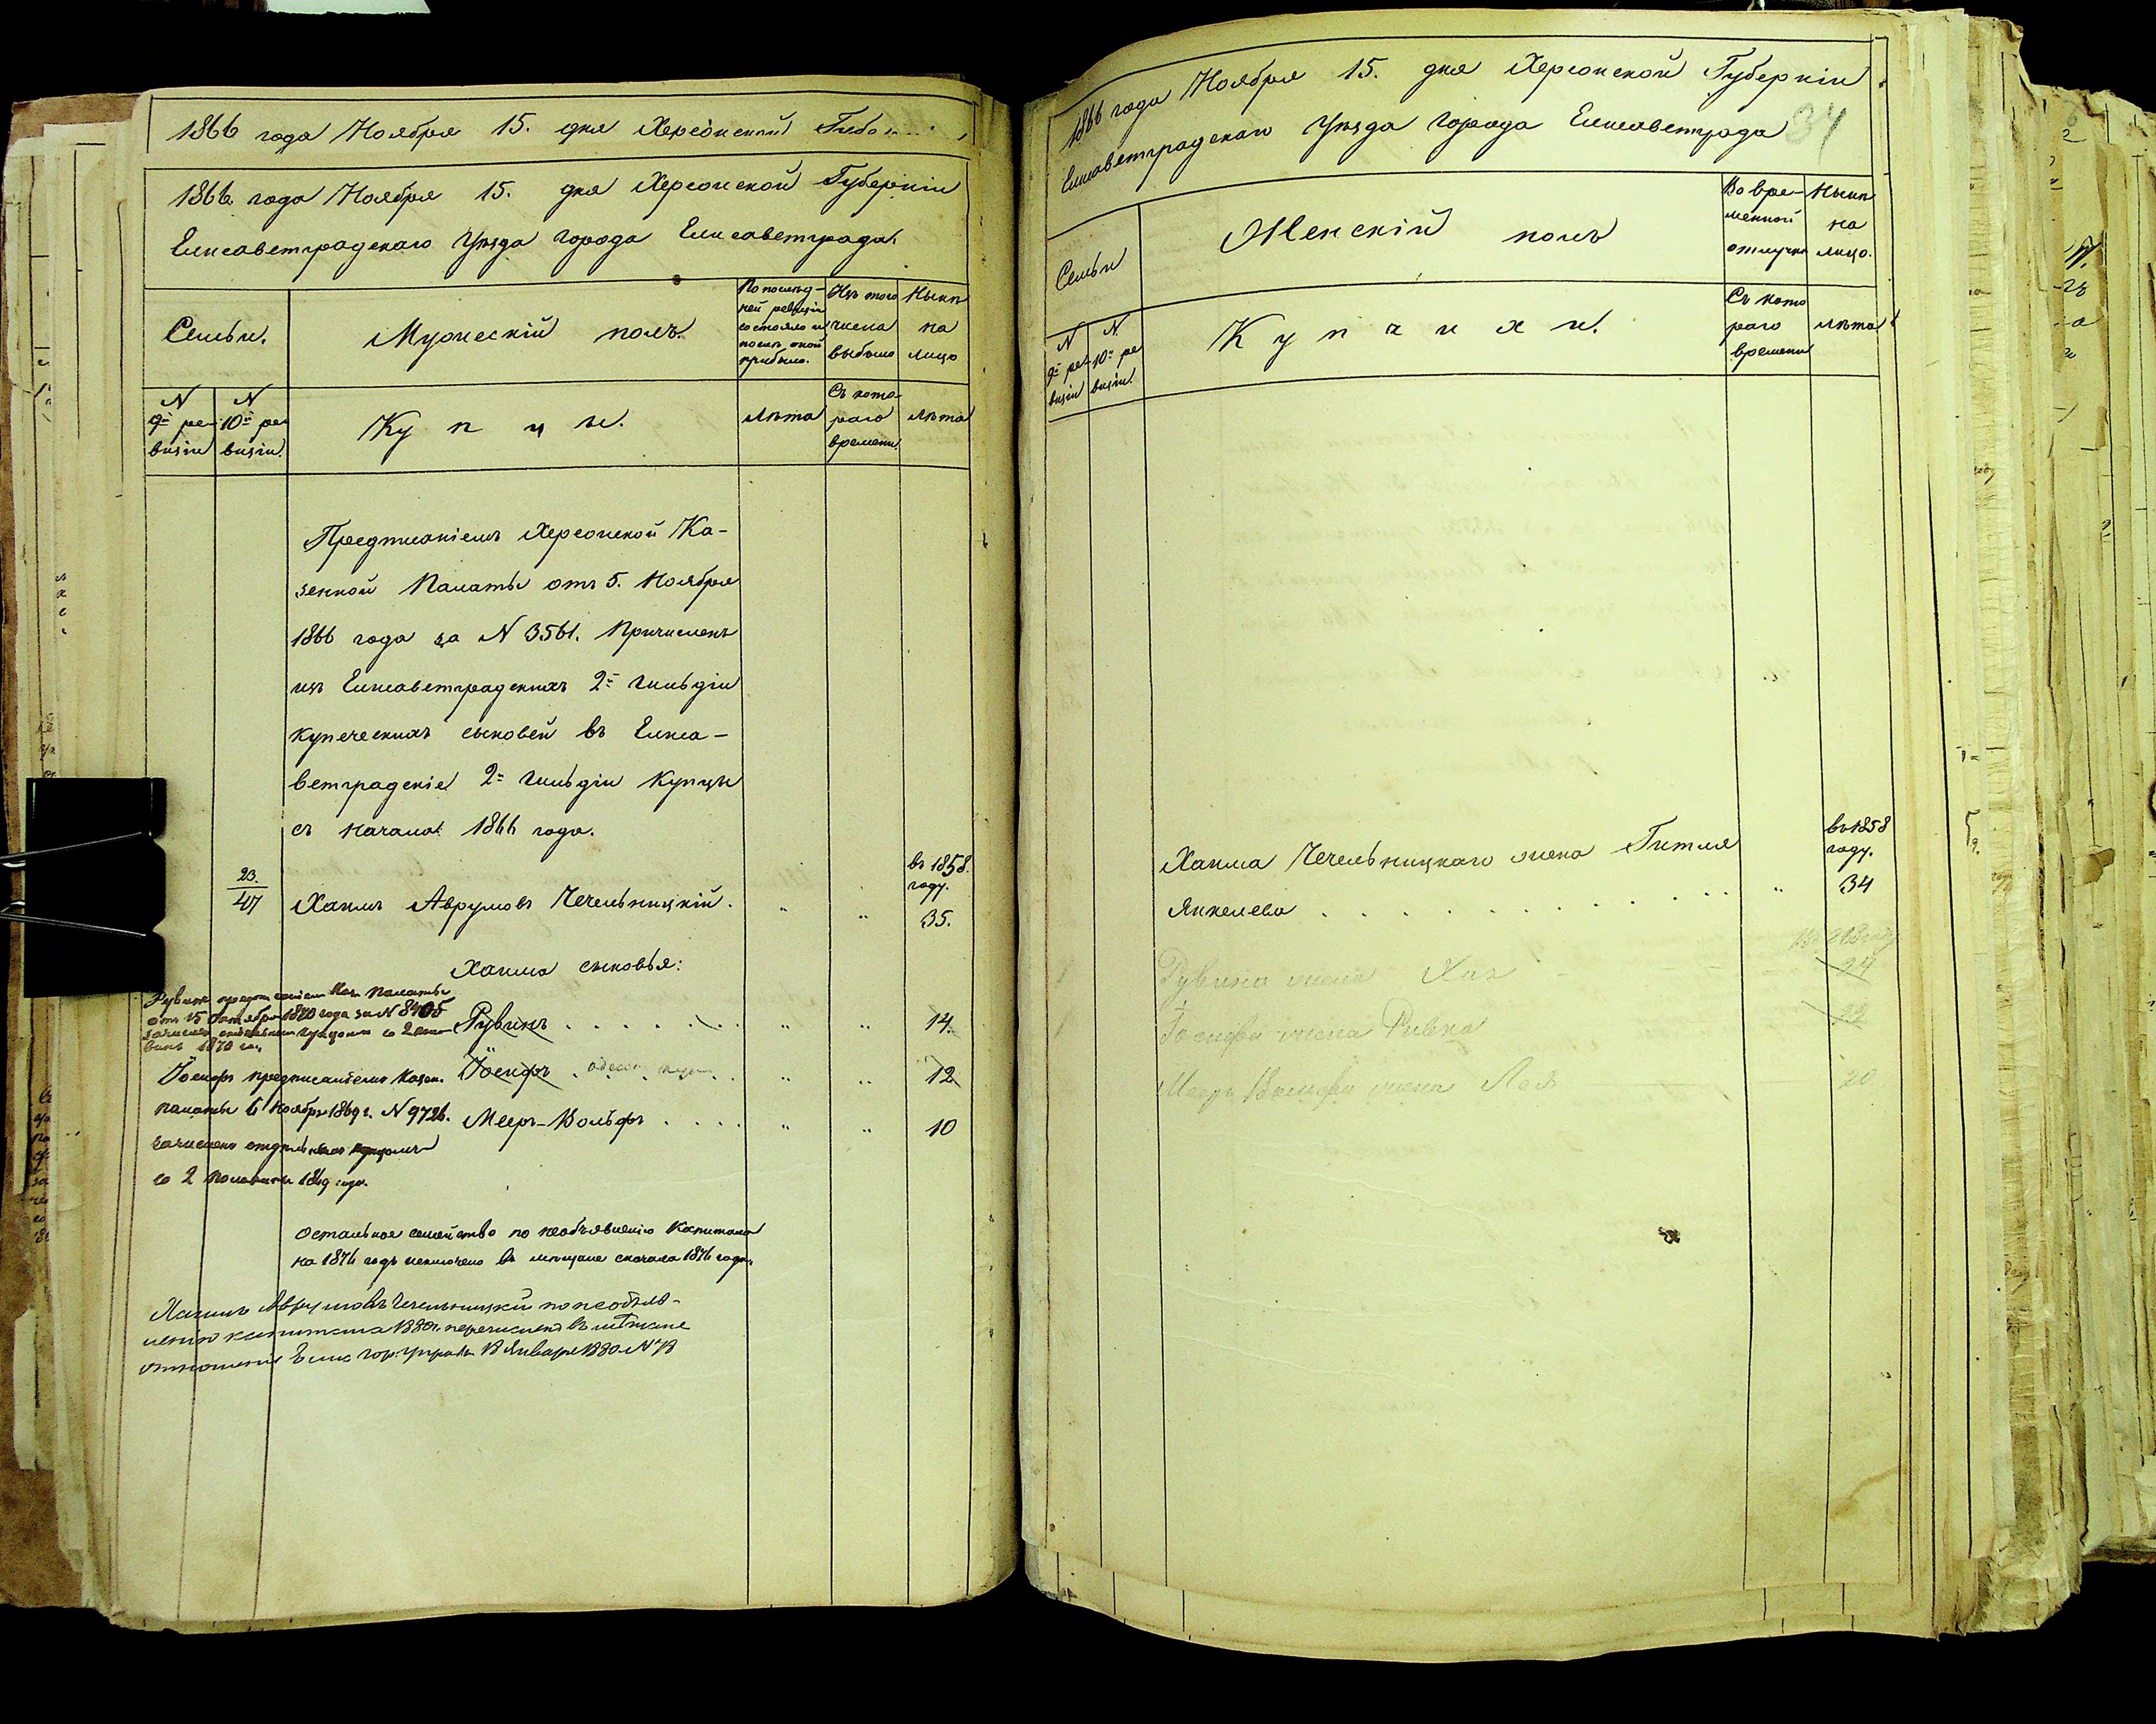 1866 года Ноября 15. дня Херсонской
1866 года Ноября 15. дня Херсонской Губерніи
Елисаветградскаго Уѣзда Города Елисаветграда.
Семьи.
Мужескій полъ.
По послѣд-
ней ревизіи
состояло и
послѣ оной
прибыло.
Изъ того
числа
выбыло
Нынѣ
на
лицо
N
9й ре-
визіи
N
10й ре
визіи.
Купцы.
Лѣта
Съ кото-
раго
времени
Лѣта
Предписаніемъ Херсонской Ка-
зенной Палаты отъ 5. Ноября
1866 года за N 3561. Причисленъ
изъ Елисаветградскихъ 2й Гильдіи
купеческихъ сыновей въ Елиса-
ветградскіе 2й Гильдіи Купцы
съ начала 1866 года.
23.
47
Хаимъ Аврумовъ Чечельницкій.
въ 1858.
году.
35.
Хаима сыновья:
Рувинъ Каз. Палаты
отъ 15 Октября 1870 года за N 8405
1870
Рувинъ
14.
Іосифъ предписаніемъ Казен.
Іосифъ
12
палаты 6 Ноября 1869 г. N 9726.
Мееръ-Вольфъ
10
зачисленъ отдѣльнымъ купцомъ
со 2 половины 1869 года.
Остальное семейство по необъявленію Капитала
на 1876 годъ исключено въ мѣщане сначала 1876 года.
Хаимъ Аврумовъ Чечельницкій по необъяв-
ленію капитала 1880 г. перечисленъ въ мѣщане
отношеніе Елис. Гор. Управы 18 Января 1880 N 78
1866 года Ноября 15. дня Херсонской Губерніи
Елисаветградскаго Уѣзда Города Елисаветграда
34
Семьи
Женскій полъ
Во вре-
менной
отлучкѣ
Нынѣ
на
лицо.
N
9й ре-
визіи
N
10й ре
визіи.
Купчихи.
Съ кото
раго
времени
Лѣта
Хаима Чечельницкаго жена Гитля
въ 1858
году.
Янкелева
34
Рувина жена
24
Іосифа жена Ривка
22
Меера Вольфа жена Лея
20